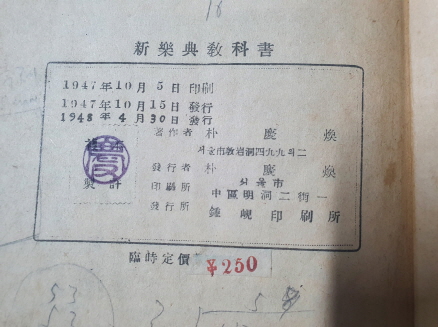 新樂典敎科書
1947年10月5日 印刷
1947年10月15日 發行
1948年4月30日 發行
著作者 朴慶煥
서울市敦岩洞四九九의二
發行者 朴慶煥
印刷所 서울市
中區明洞二街一
發行所 鍾峴印刷所
臨時定價 ₩250
53
53